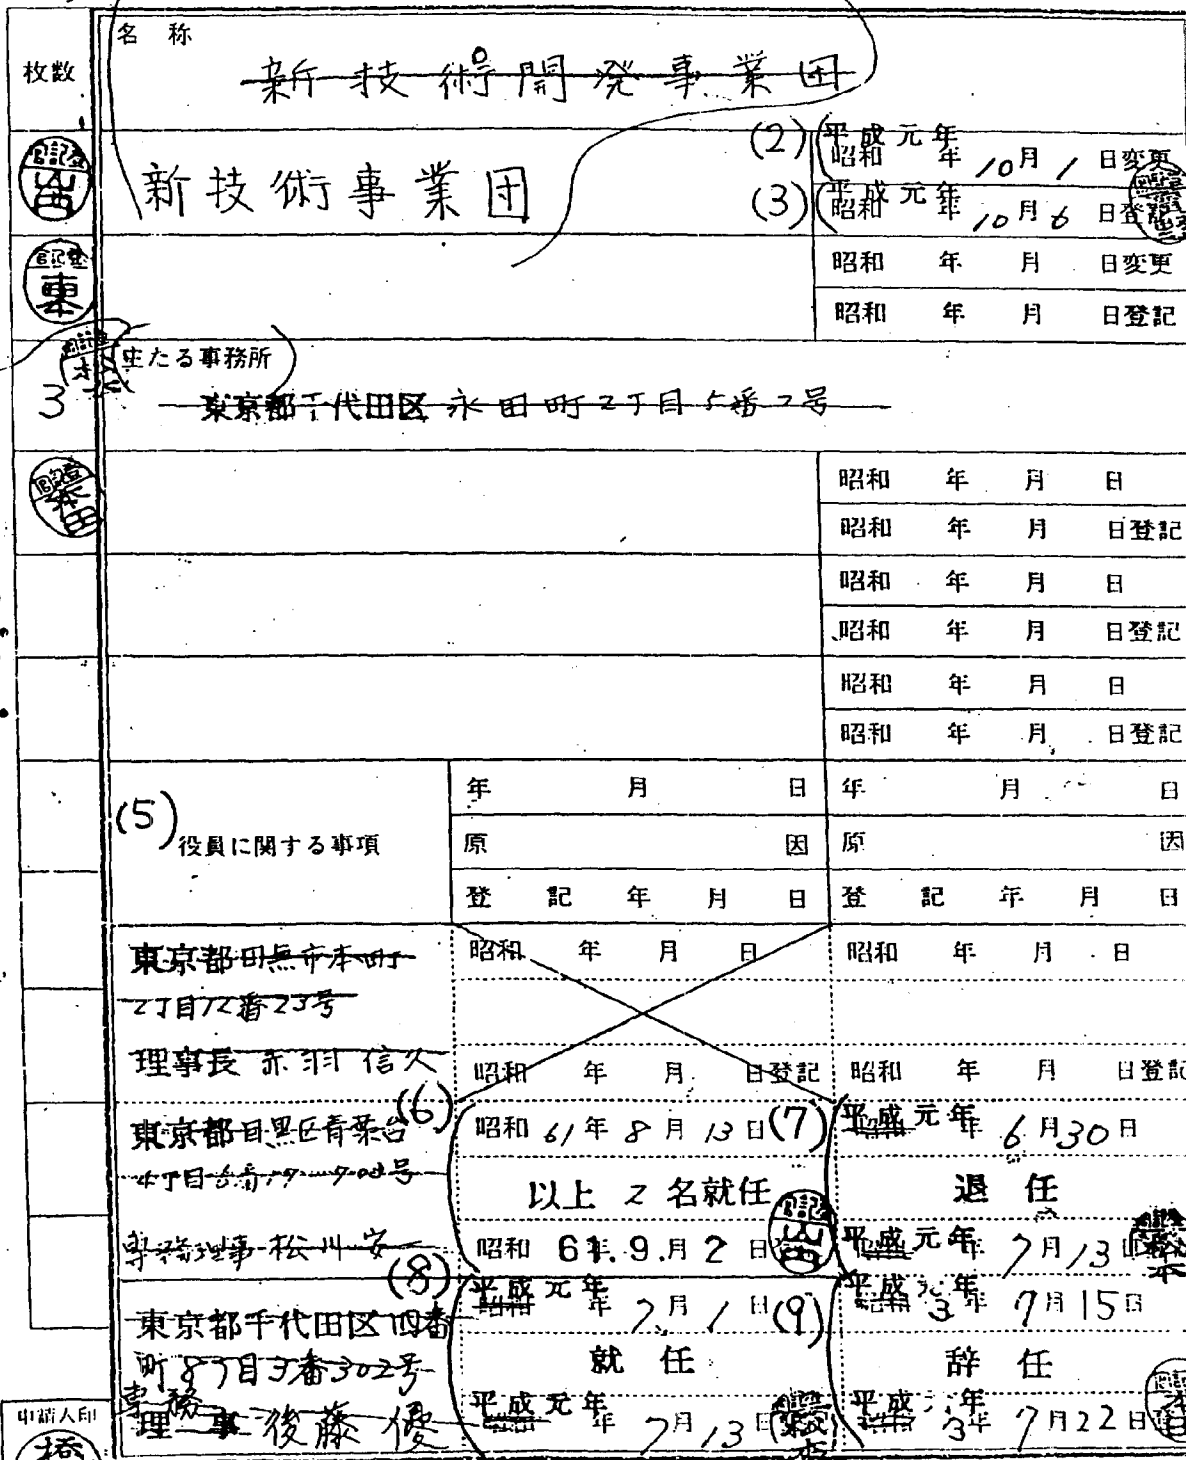 名称
枚数
新技術開発事業団
(2) 平成元年
昭和 年 10月 1 日変更
新技術事業団
(3) 平成元年
昭和 年 10月 6 日登記
昭和 年 月 日変更
昭和 年 月 日登記
主たる事務所
3
東京都千代田区永田町2丁目5番2号
昭和 年 月 日
昭和 年 月 日登記
昭和 年 月 日
昭和 年 月 日登記
昭和 年 月 日
昭和 年 月 日登記
(5) 役員に関する事項
年 月 日
原 因
登 記 年 月 日
年 月 日
原 因
登 記 年 月 日
東京都田無市本町
2丁目12番23号
理事長 赤羽信久
昭和 年 月 日
昭和 年 月 日登記
昭和 年 月 日
昭和 年 月 日登記
東京都目黒区青葉台
専務理事 松川安
(6)
昭和 61年 8月 13日
以上 2 名就任
昭和 61.9.月 2 日登記
(7)
平成元年
昭和 年 6月30日
退 任
平成元年
昭和 年 7月13日
東京都千代田区四番
町8丁目3番302号
専務
理 事 後藤 優
(8)
平成元年
昭和 年 7月 1 日
就 任
平成元年
昭和 年 7月 13 日
(9)
平成元年
昭和 3年 7月15日
辞 任
平成
昭和 3年 7月22日
申請人印